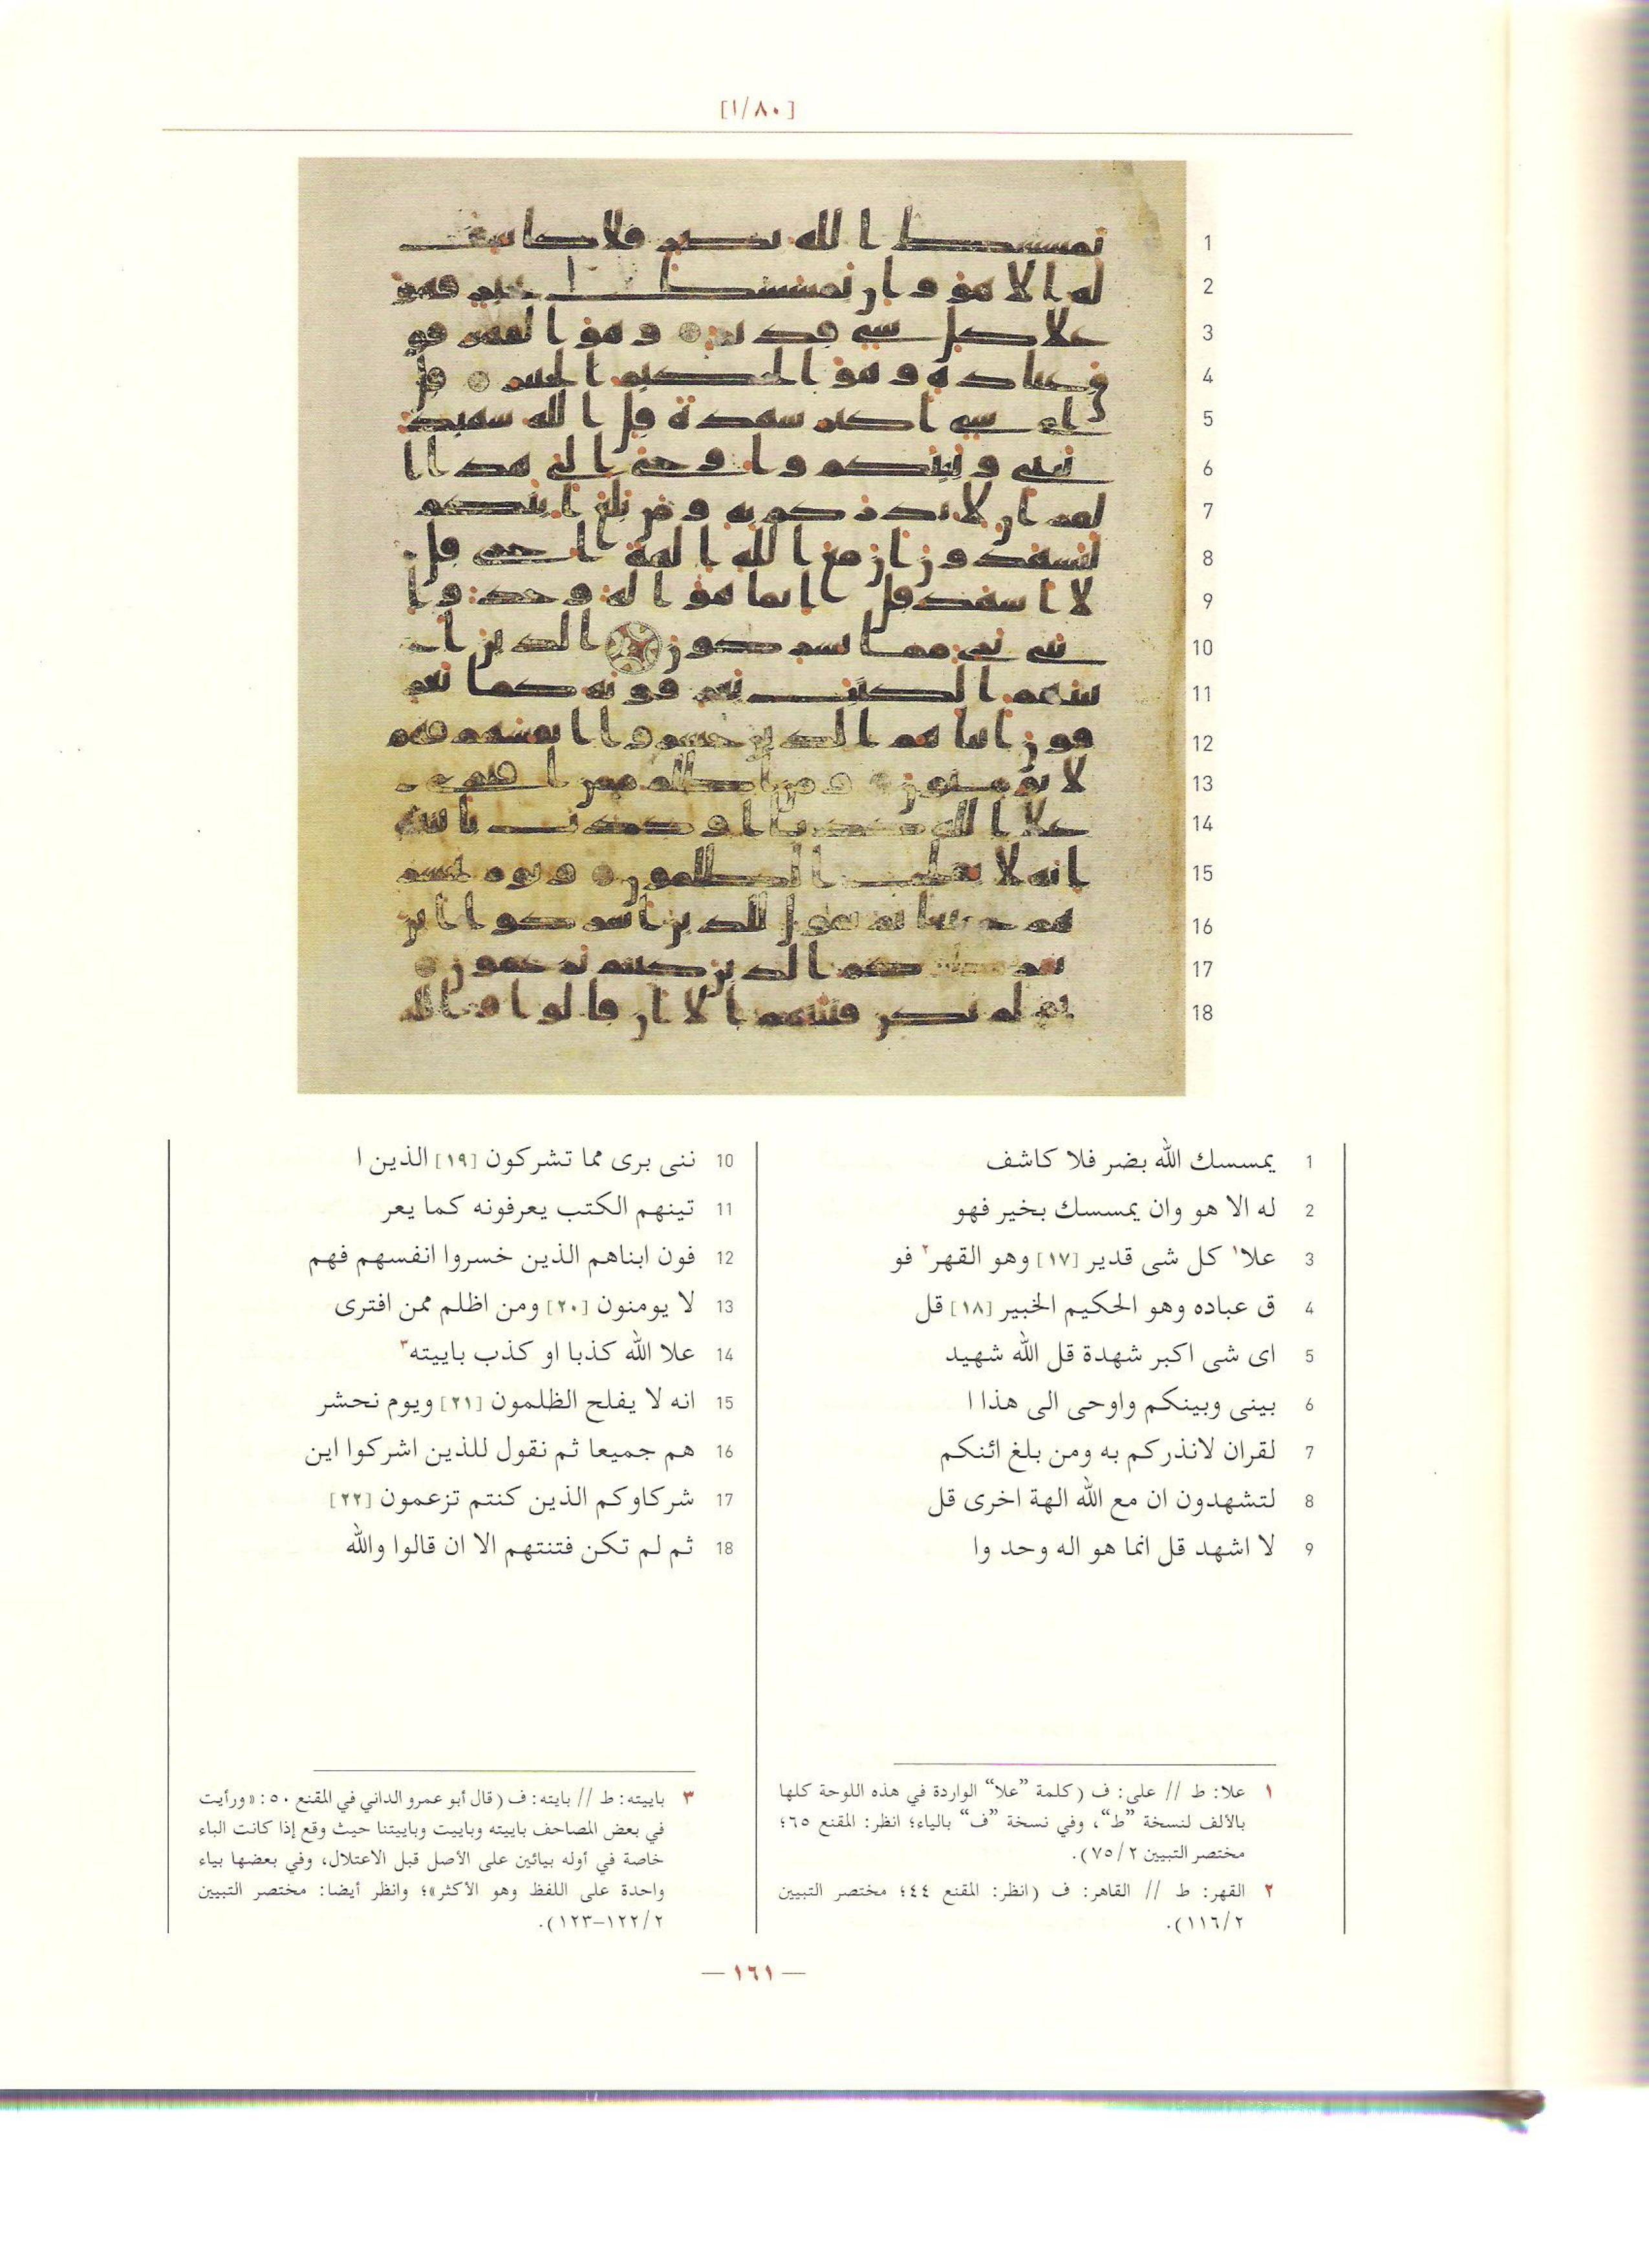 [١/٨٠]
1 يمسسك الله بضر فلا كاشف
2 له الا هو وان يمسسك بخير فهو
3 علا١ كل شى قدير [١٧] وهو القهر٢ فو
4 ق عباده وهو الحكيم الخبير [١٨] قل
5 اى شى اكبر شهدة قل الله شهيد
6 بينى وبينكم واوحى الى هذا ا
7 لقران لانذركم به ومن بلغ ائنكم
8 لتشهدون ان مع الله الهة اخرى قل
9 لا اشهد قل انما هو اله وحد وا
10 ننى برى مما تشركون [١٩] الذين ا
11 تينهم الكتب يعرفونه كما يعر
12 فون ابناهم الذين خسروا انفسهم فهم
13 لا يومنون [٢٠] ومن اظلم ممن افترى
14 علا الله كذبا او كذب باييته٣
15 انه لا يفلح الظلمون [٢١] ويوم نحشر
16 هم جميعا ثم نقول للذين اشركوا اين
17 شركاوكم الذين كنتم تزعمون [٢٢]
18 ثم لم تكن فتنتهم الا ان قالوا والله
١ علا: ط // على: ف (كلمة ”علا“ الواردة في هذه اللوحة كلها
بالألف لنسخة ”ط“، وفي نسخة ”ف“ بالياء؛ انظر: المقنع ٦٥؛
مختصر التبيين ٧٥/٢).
٢ القهر: ط // القاهر: ف (انظر: المقنع ٤٤؛ مختصر التبيين
١١٦/٢).
٣ باييته: ط // بايته: ف (قال أبو عمرو الداني في المقنع ٥٠: «ورأيت
في بعض المصاحف باييته وباييت وباييتنا حيث وقع إذا كانت الباء
خاصة في أوله بيائين على الأصل قبل الاعتلال، وفي بعضها بياء
واحدة على اللفظ وهو الأكثر»؛ وانظر أيضا: مختصر التبيين
١٢٢/٢–١٢٣).
— ١٦١ —